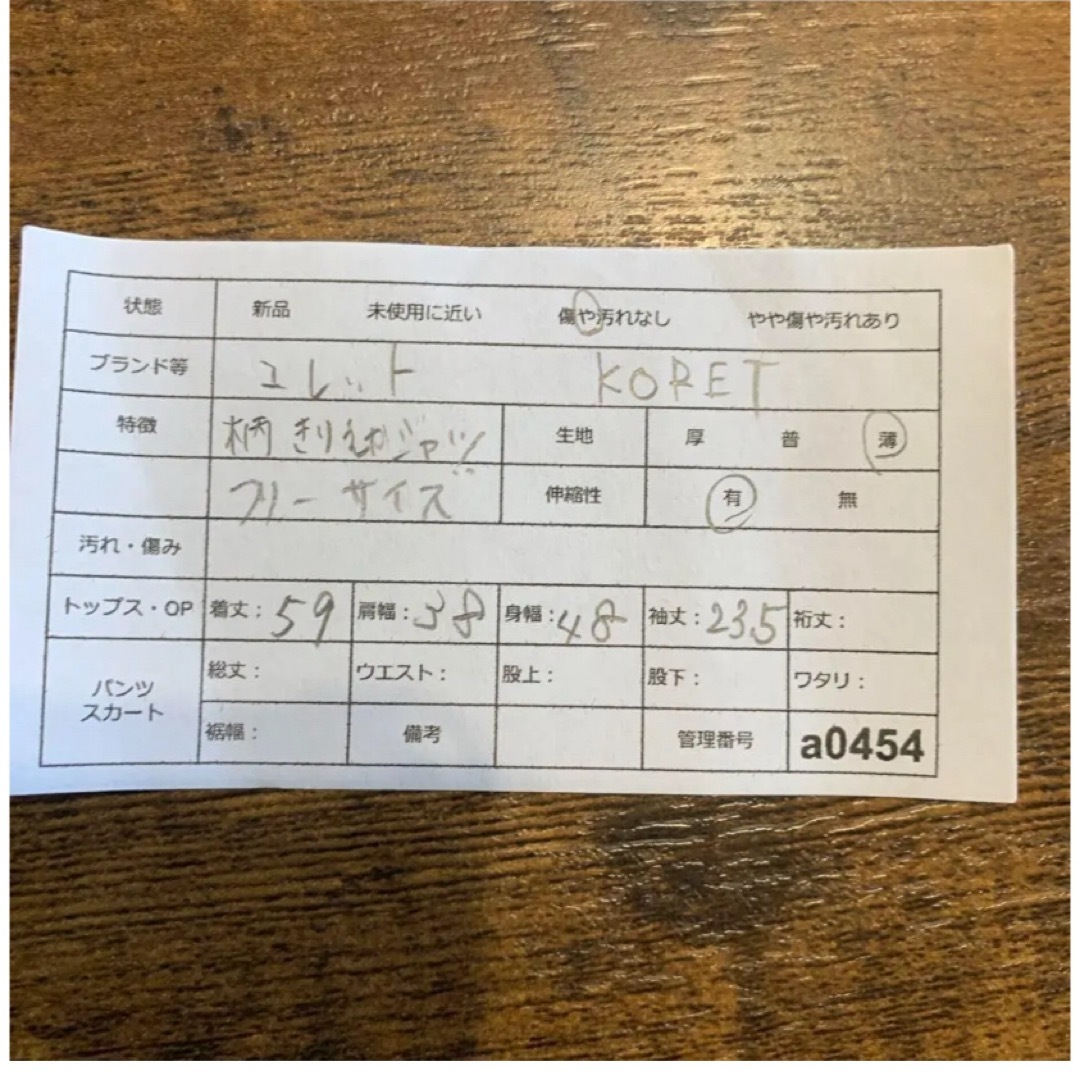 状態 新品 未使用に近い 傷や汚れなし やや傷や汚れあり
ブランド等 コレット KORET
特徴 柄 生地 厚 普 薄
フリーサイズ 伸縮性 有 無
汚れ・傷み
トップス・OP 着丈：59 肩幅：38 身幅：48 袖丈：23.5 裄丈：
パンツ スカート 総丈： ウエスト： 股上： 股下： ワタリ：
裾幅： 備考 管理番号 a0454